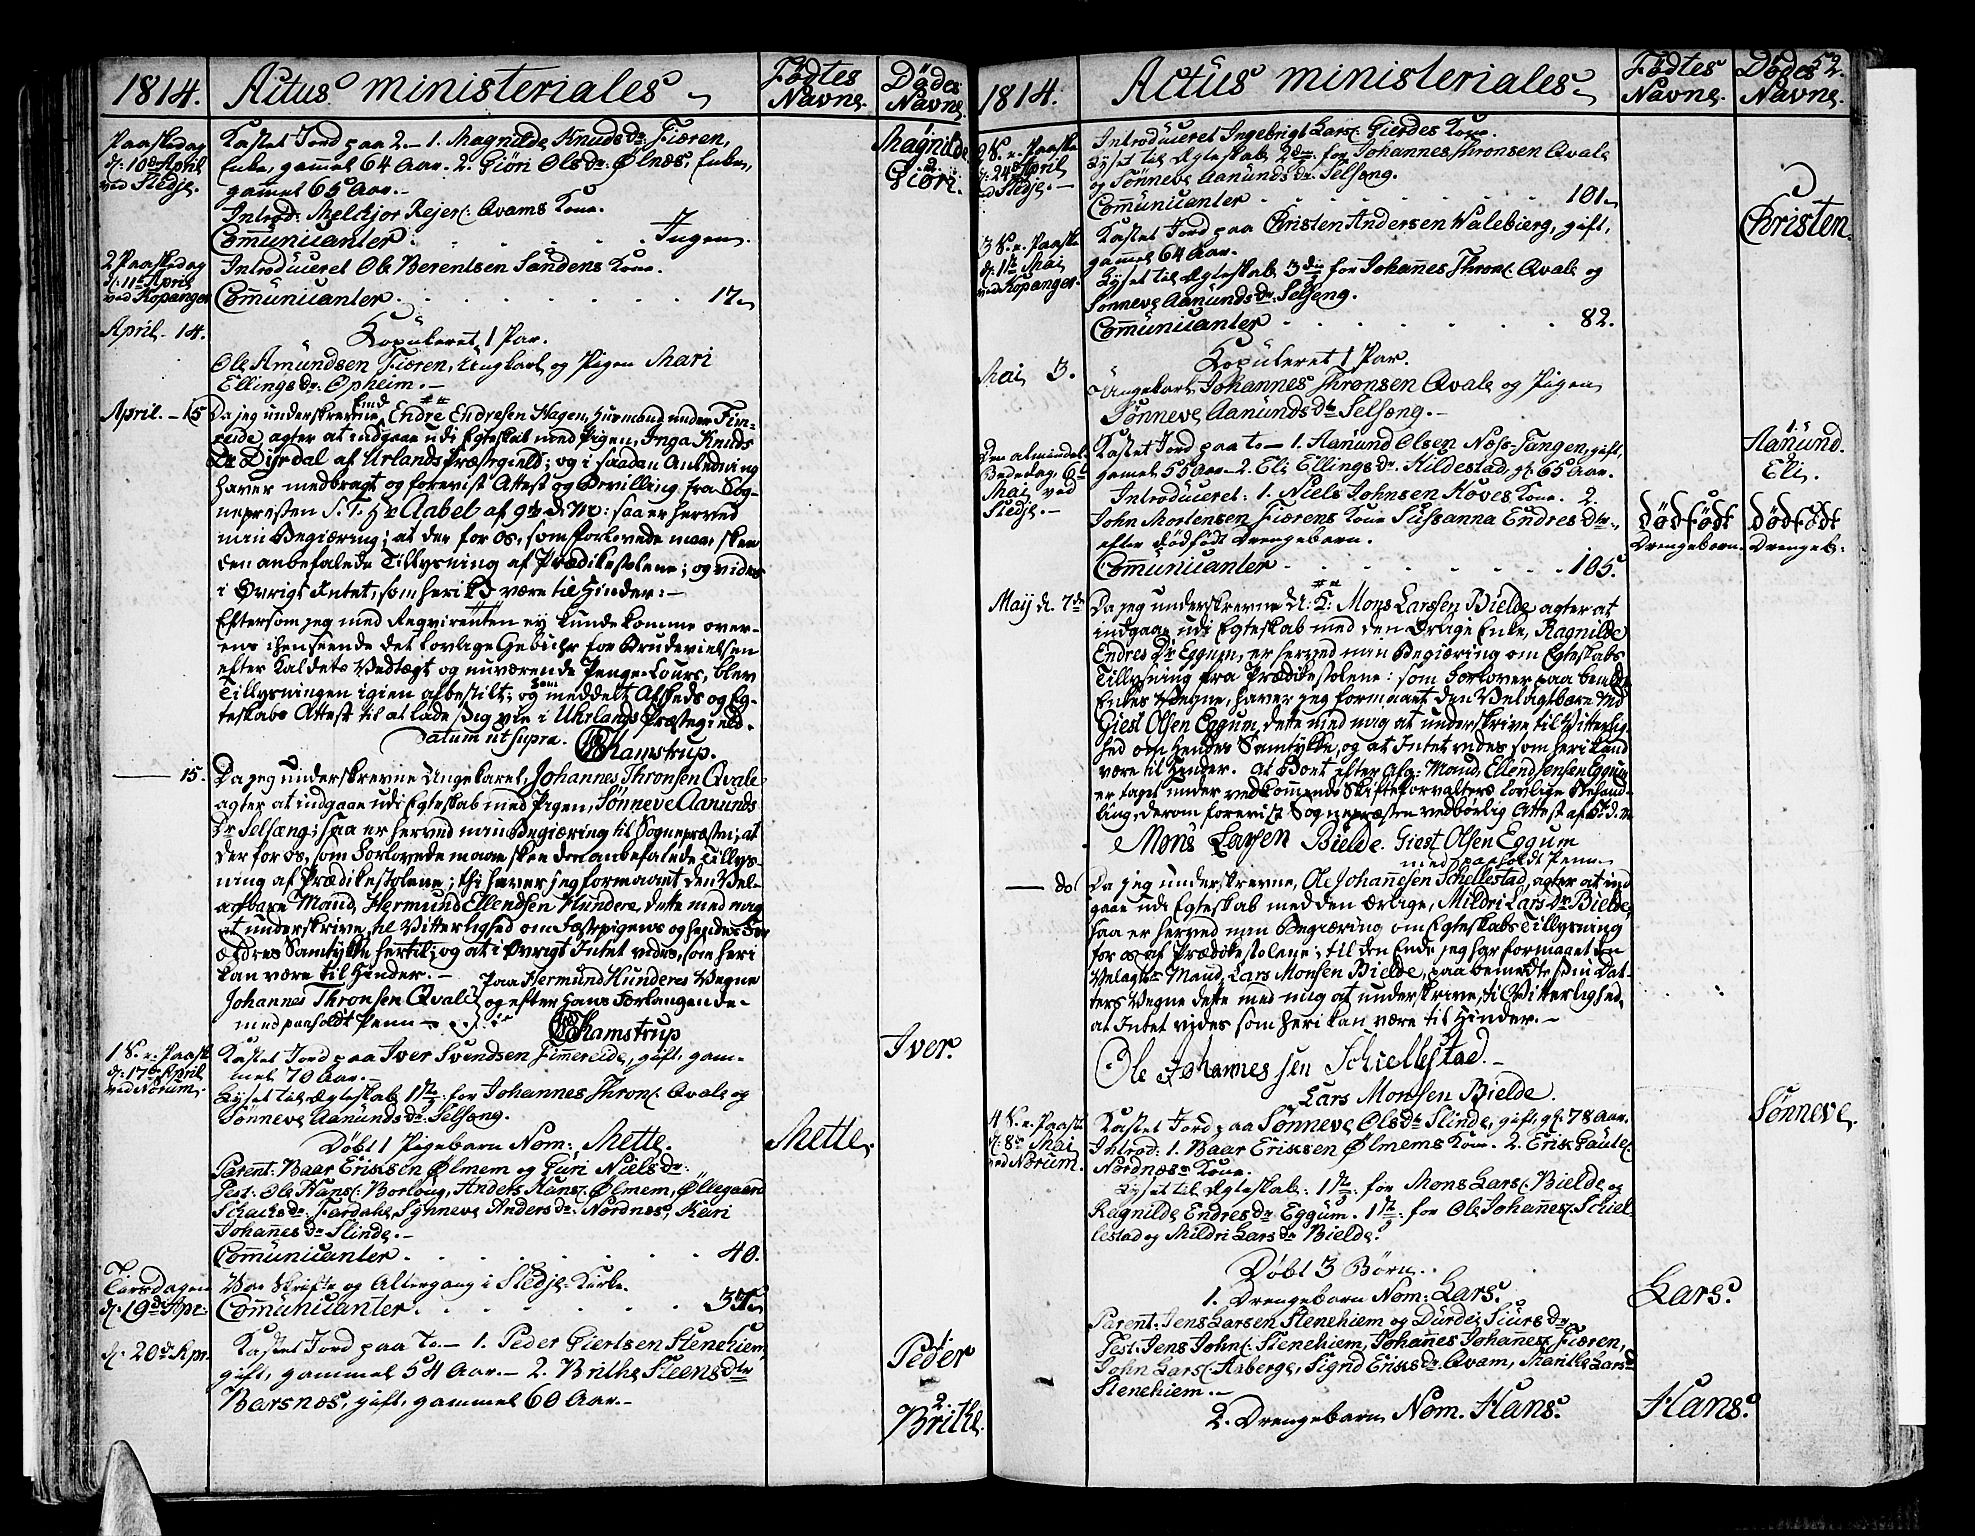 1814. Actus ministeriales Fødtes Navne. Døde Navne.
Paaskedag
d: 10de April
ved Stedje.
Kastet Jord paa 2 - 1. Magnilde Knudsdr Fiæren,
Enke, gammel 64 Aar. 2. Giöri Olsdr: Ølnæs, Enke,
gammel 65 Aar.
Introd: Melchjor Rejers: Qvams Kone.
Communicanter . . . . . Ingen.
1
Magnilde
2
Giöri.
2 Paaskedag
d: 11te April
ved Kopanger
Introduceret Ole Berentsen Sandens Kone.
Communicanter . . . . . 17
April 14.
Kopuleret 1 Par.
Ole Amundsen Fiæren, Ungkarl og Pigen Mari
Ellingsdr. Opheim.
April. - 15
Da jeg underskrevne Endre Endresen Hagen, Huusmand under Fim-
reide, agter at indgaae udi Egteskab med Pigen, Inga Knuds
Dr Dyrdal af Urlands Præstegield; og i saadan Anledning
haver medbragt og foreviist Attest og Bevilling fra Sog-
nepresten S. T. Hr Aabel af 9de d. M: saa er herved
min Begiæring; at der for os, som forlovede maae skee
den anbefalede Tillysning af Prædikestolene; og vides
i Øvrigt Intet, som heri kand være til Hinder:
Eftersom jeg med Reqvirenten ey kunde komme over-
ens i henseende det lovlige Gebuhr for Brudevielsen
efter Kaldets Vedtægt og nuværende Penge-Cours, blev
Tillysningen igien afbestilt; og som meddelt Afskeds og Eg-
teskabs Attest til at lade sig vie i Uhrlands Præstegield.
Datum ut supra. Hamstrup.
15.
Da jeg underskrevne Ungekarl, Johannes Thronsen Qvale
agter at indgaae udi Egteskab med Pigen, Sønneve Aamunds
Dr Selseng; saa er herved min Begiæring til Sognepræsten; at
der for os, som Forlovede maae skee den anbefalede Tillys-
ning af Prædikestolene; thi haver jeg formaaet den Vel-
agtbare Mand, Hermund Ellendsen Hundere, dette med mig
at underskrive, til Vitterlighed om Fæstepigens og hendes For
ældres Samtykke hertil; og at i Øvrigt Intet vides, som heri
kan være til Hinder. - Paa Hermund Hunderes Vegne
Johannes Thronsen Qvale og efter hans Forlangende
med paaholdt Penn Hamstrup
1 S. e. Paask
d: 17de April
ved Norum.
Kastet Jord paa Iver Svendsen Fimmereide, gift, gam-
mel 70 Aar.
Lyset til Ægteskab 1ste for Johannes Throns: Qvale og
Sønneve Aamundsdr Selseng.
Iver.
Døbt 1 Pigebarn Nom: Mette.
Mette.
Parent: Baar Eriksen Ølmem og Guri Nielsdr:
Test: Ole Hans: Borlaug, Anders Hans: Ølmem, Øllegaard
Schacksdr: Fardahl, Synneve Andersdr: Nordnes, Kari
Johanesdr Slinde.
Communicanter . . . . . 40.
Tiirsdagen
d: 19de Apr:
Var Skrifte og Altergang i Stedje-Kirke.
Communicanter . . . . . 37
d: 20de Apr.
Kastet Jord paa To - 1. Peder Giertsen Stenehiem,
gift, gammel 54 Aar. - 2. Brithe Steensdtr
Barsnæs, gift, gammel 60 Aar.
1.
Peder
2.
Brithe.
1814. Actus ministeriales Fødtes Navne. Dødes Navne. 52.
2 S. e. Paaske
d: 24de April
ved Stedje.
Introduceret Ingebrigt Lars: Gierdes Kone.
Lyset til Ægteskab 2den for Johannes Thronsen Qvale
og Sønneve Aamundsdr Selseng.
Communicanter . . . . . 101
3 S. e. Paaske
d: 1ste Mai
ved Kopanger.
Kastet Jord paa Christen Andersen Walebierg, gift,
gammel 64 Aar.
Lyset til Ægteskab 3die for Johannes Throns: Qvale og
Sønneve Aamundsdr. Selseng.
Communicanter . . . . . 82.
Christen.
Mai 3.
Kopuleret 1 Par.
Ungekarl Johannes Thronsen Qvale og Pigen
Sønneve Aamundsdtr Selseng.
Den almindel.
Bededag, 6te
Mai, ved
Stedje.
Kastet Jord paa to - 1. Aamund Olsen Næss-Tangen, gift,
gamel 55 Aar - 2. Eli Ellingsdr. Hildestad, gl: 65 Aar.
Introduceret: 1. Niels Johnsen Hoves Kone. 2.
John Mortensen Fiærens Kone Susanna Endresdtr.,
efter dødfødt Drengebarn.
Communicanter . . . . . 105.
1.
Aamund.
Eli.
Dødfødt
Drengebarn.
Dødfødt
Drengeb:
Maij d. 7de
Da jeg underskrevne Mons Larssen Bielde agter at
indgaae udi Egteskab med den Ærlige Enke, Ragnilde
Endres Dr Eggum, er herved min Begiæring om Egteskabs
Tillysning fra Prædikestolene: som Forlover paa bemeldte
Enkes Vegne, haver jeg formaaet den Velagtbare Md
Giest Olsen Eggum, dette med mig at underskrive til Vitterlig-
hed om hendes Samtykke, og at Intet vides, som heri kand
være til Hinder. At Boet efter Afg: Mand, Ellend Jensen Eggum
er taget under vedkommende Skifteforvalters lovlige Behand-
ling, derom foreviist Sognepræsten vedbørlig Attest af 5te d. M
Mons Larsen Bielde. Giest Olsen Eggum
med paaholdt Penn
do
Da jeg underskrevne, Ole Johannesen Schellestad, agter at ind
gaae udi Egteskab med den ærlige, Mildri Lars Dr Bielde,
saa er herved min Begiæring om Egteskabs Tillysning
for os af Prædikestolene; til den Ende jeg har formaaet den
Velagte Mand, Lars Monsen Bielde, paa bemeldte sin Dat-
ters Vegne dette med mig at underskrive, til Vitterlighed,
at Intet vides som heri kan være til Hinder.
Ole Johannes sen Schiellestad.
Lars Monsen Bielde.
4 S. e. Paaske
d: 8de Mai
ved Norum.
Kastet Jord paa Sønneve Olsdtr Slinde, gift, gl: 78 Aar.
Introd: 1. Baar Eriksen Ølmems Kone. 2. Erik Pauls:
Nordnæs Kone.
Lyset til Ægteskab: 1ste: for Mons Lars: Bielde og
Ragnilde Endresdr Eggum. 1ste: for Ole Johannes: Schiel-
lestad og Mildri Larsdr Bielde.
Sønneve.
Døbt 3 Børn.
1. Drengebarn Nom: Lars.
Lars.
Parent: Jens Larsen Stenehiem og Durdei Siursdr.
Test: Jens John: Stenehiem, Johannes Johannes: Fiæren,
John Lars: Aaberge, Sigrid Eriksdr: Qvam, Marithe Larsd
Stenehiem.
2. Drengebarn Nom. Hans.
Hans.